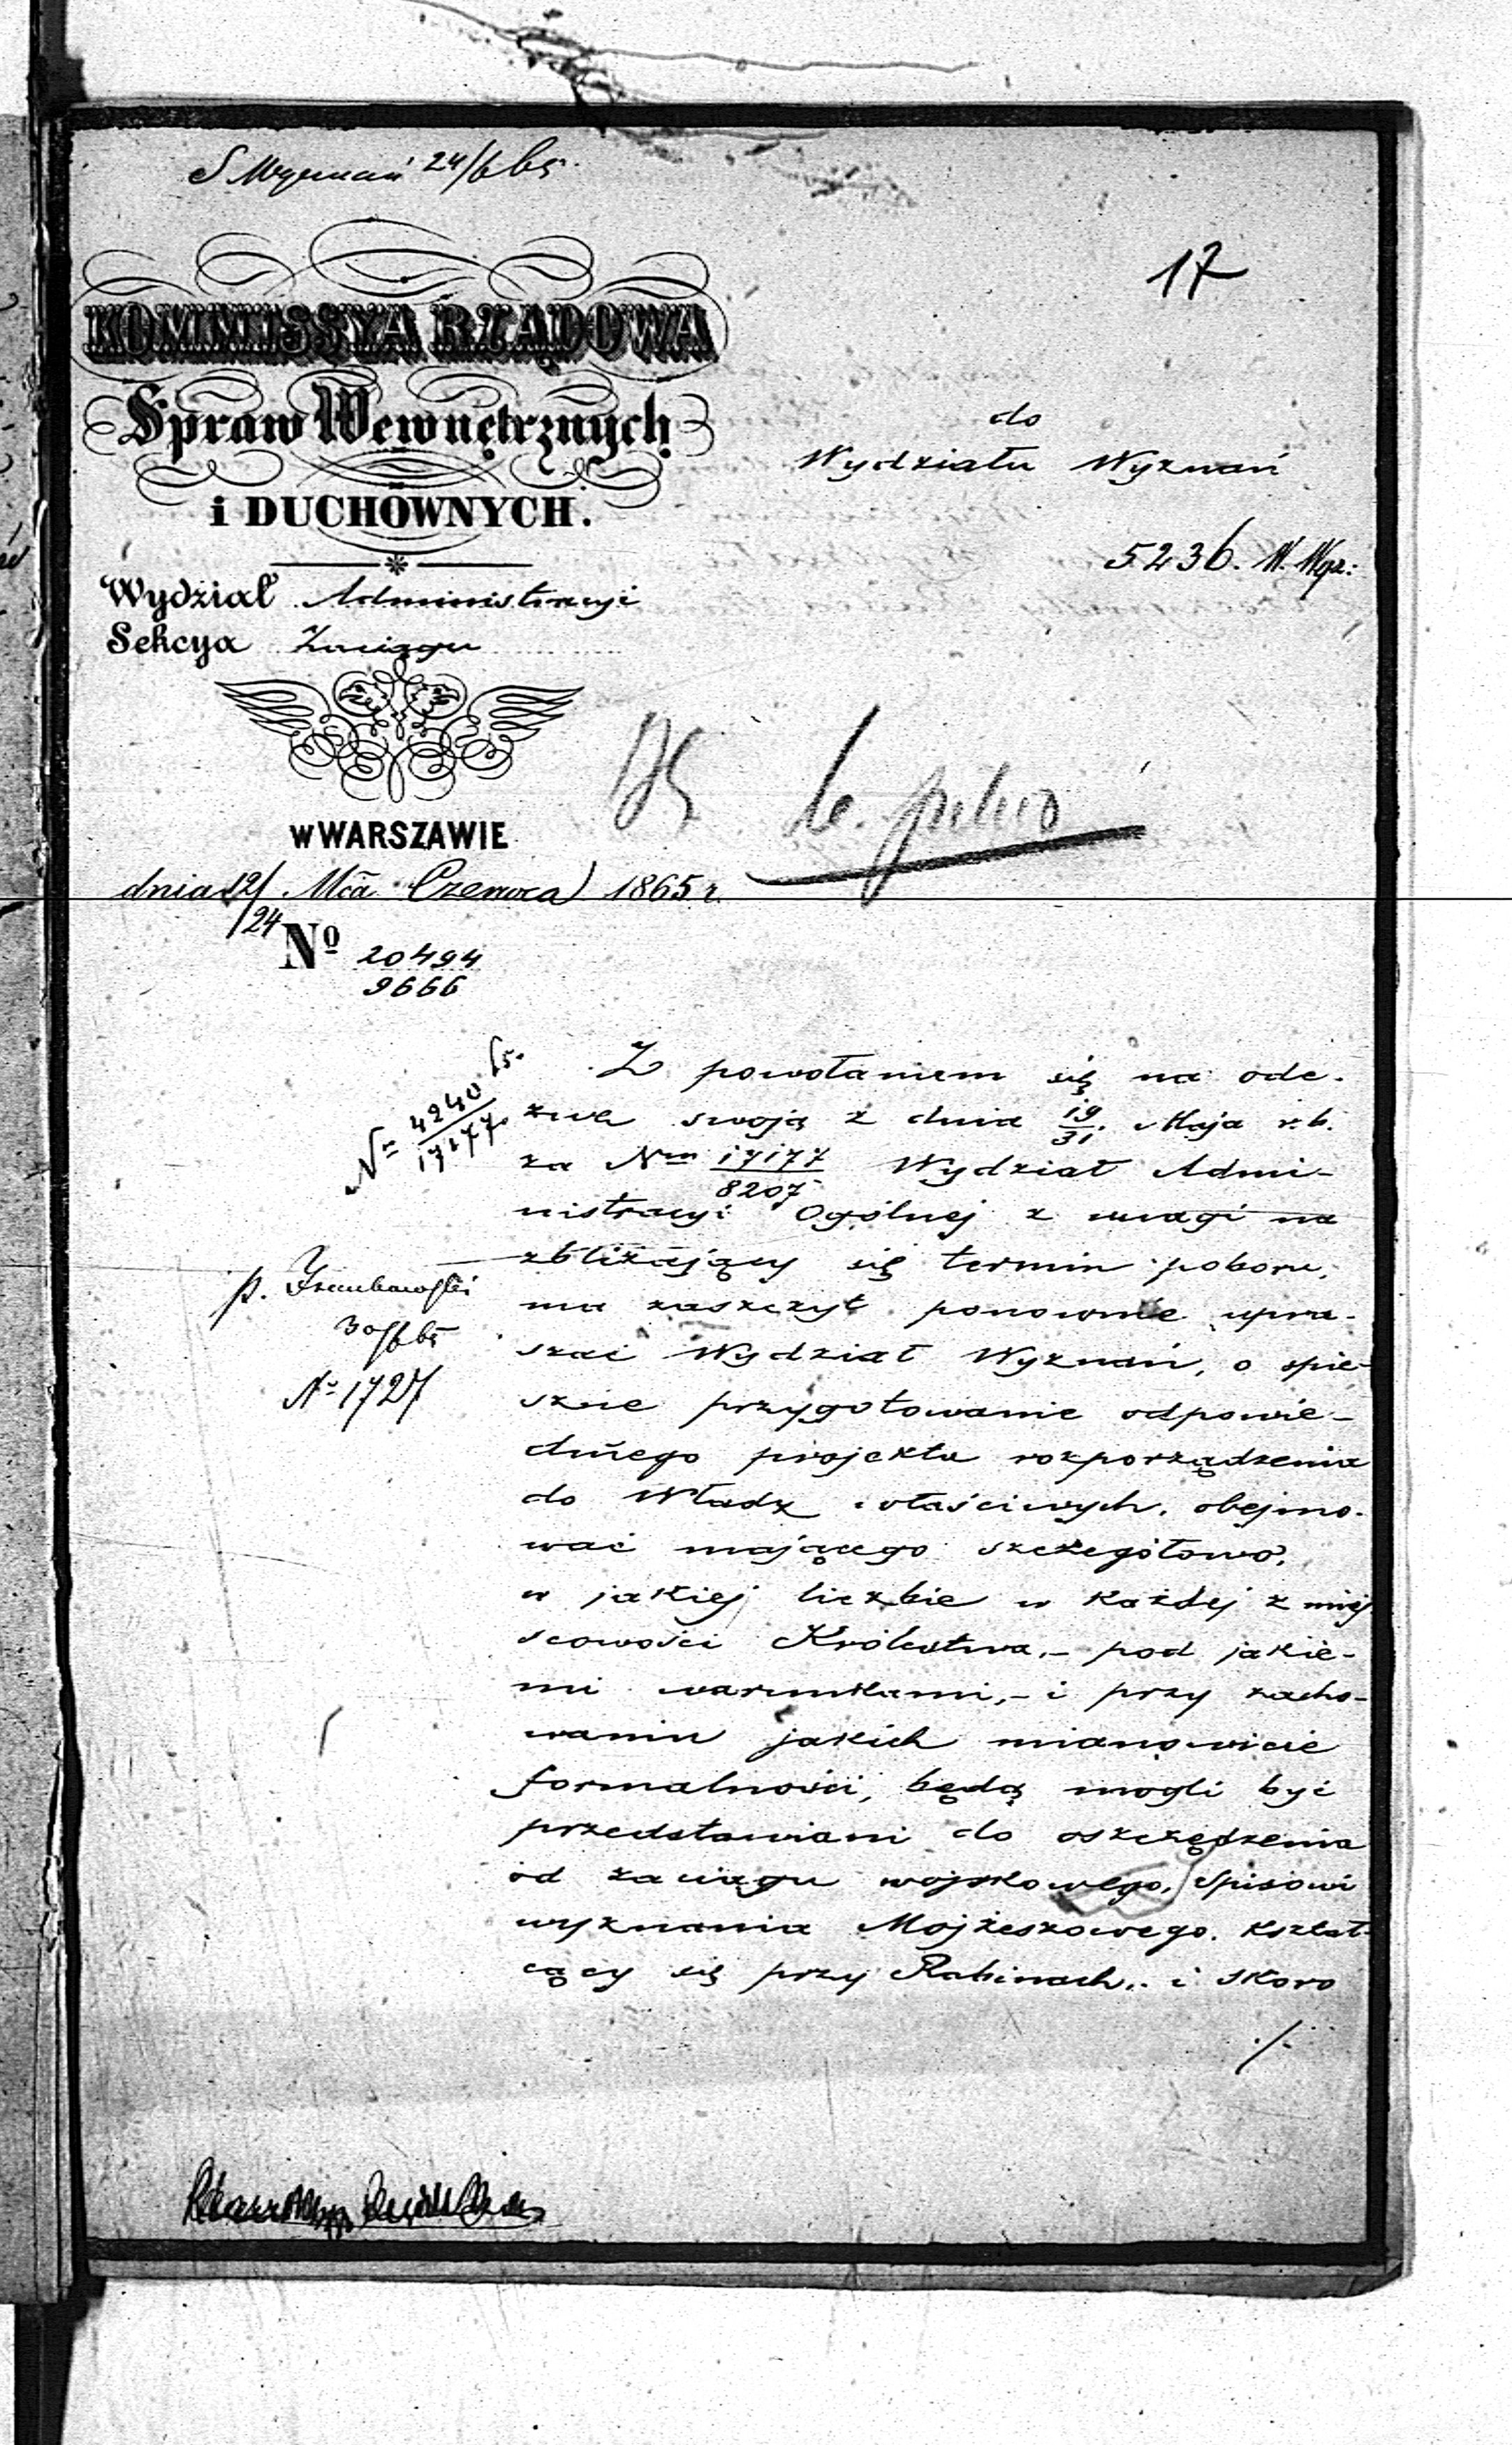 Wyznań 24/6 65.
17
KOMMISSYA RZĄDOWA
Spraw Wewnętrznych
i DUCHOWNYCH.
Wydział Administracyi
Sekcya Zaciągu
w WARSZAWIE
dnia 12/24 Mca Czerwca 1865 r.
No 20494
9666
do
Wydziału Wyznań
5236. W. Wyz:
b. pilno
No 4240 65.
17177
p.
30/6 65
No 1727
Z powołaniem się na ode-
zwę swoją z dnia 19/31 Maja r.b.
za Nrm 17177/8207 Wydział Admi-
nistracyi Ogólnej z uwagi na
zbliżający się termin poboru,
ma zaszczyt ponownie upra-
szać Wydział Wyznań, o spie-
szne przygotowanie odpowie-
dniego projektu rozporządzenia
do Władz właściwych, obejmo-
wać mającego szczegółowo,
w jakiej liczbie w każdej z miej
scowości Królestwa,- pod jakie-
mi warunkami,- i przy zacho-
waniu jakich mianowicie
formalności, będą mogli być
przedstawiani do oszczędzenia
od zaciągu wojskowego, spisowi
wyznania Mojżeszowego, kształ-
cący się przy Rabinach,- i skoro
./.